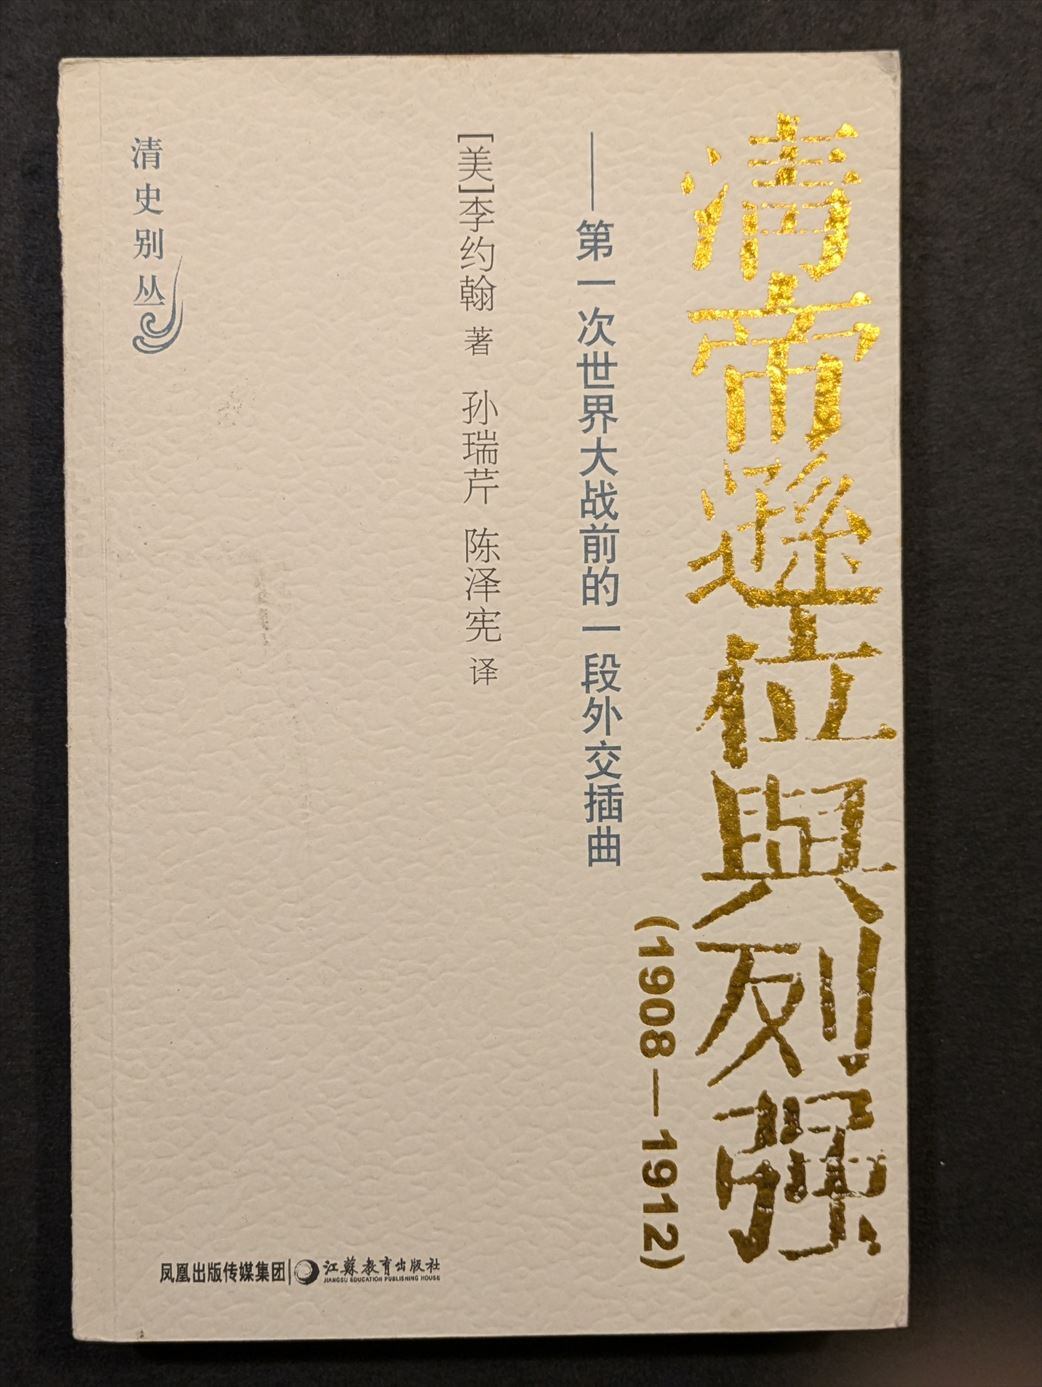 清帝遜位與列强
(1908—1912)
——第一次世界大战前的一段外交插曲
[美]李约翰 著 孙瑞芹 陈泽宪 译
清史别丛
凤凰出版传媒集团 江蘇教育出版社
JIANGSU EDUCATION PUBLISHING HOUSE